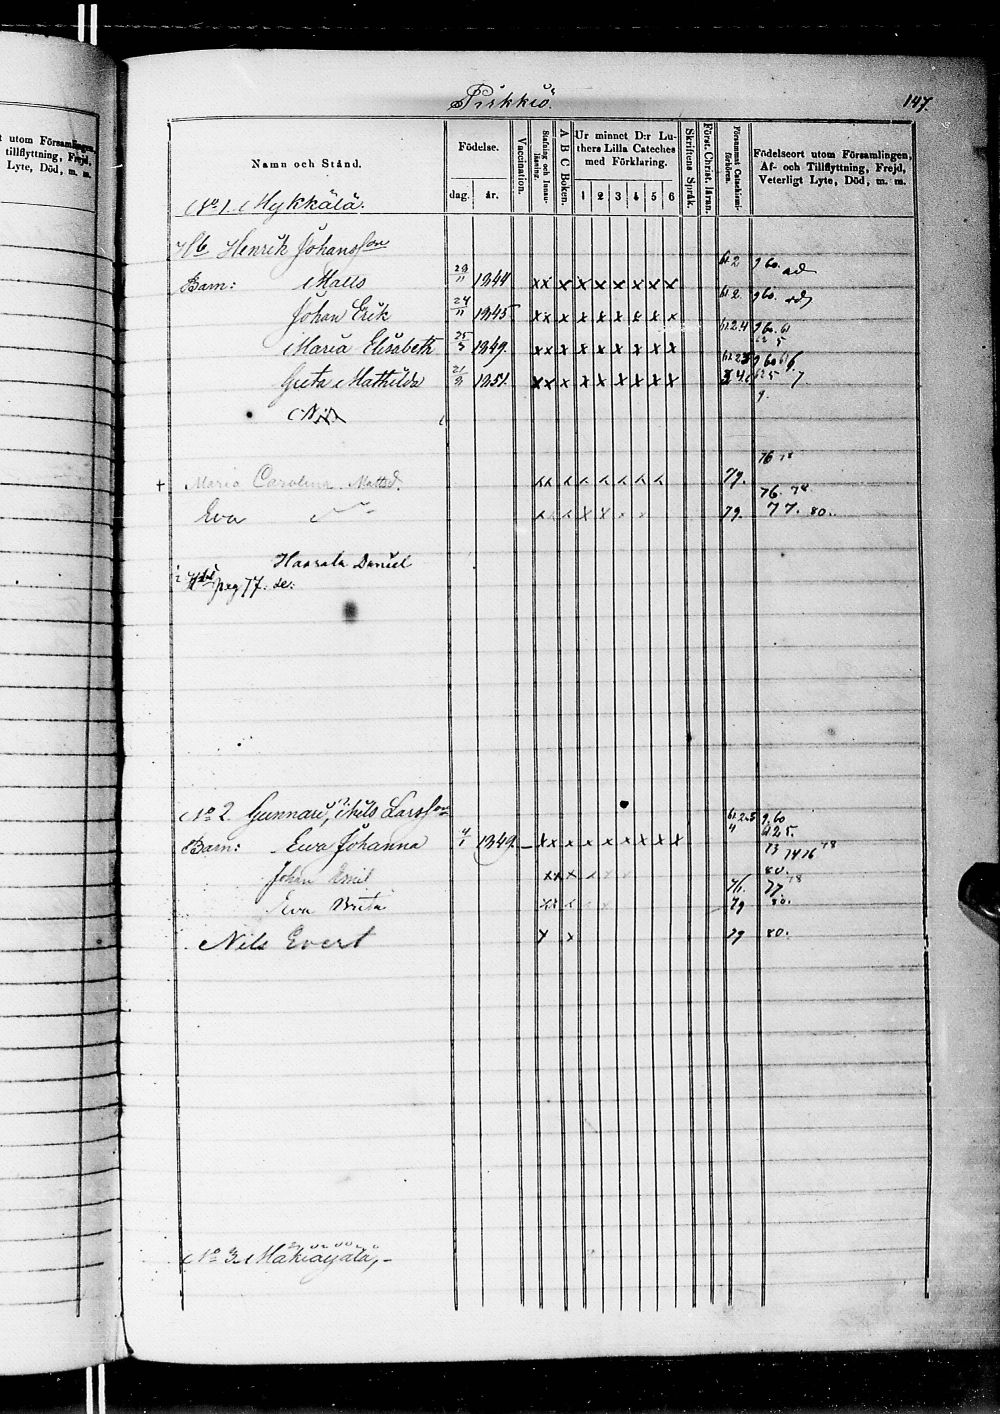 t utom Församlingen,
tillflyttning, Frejd,
Lyte, Död, m. m.
Pirkkiö.
147.
Namn och Stånd.
Födelse.
dag.
år.
Vaccination.
Stafning och Innanläsning.
A B C Boken.
Ur minnet D:r Luthers Lilla Cateches med Förklaring.
1 2 3 4 5 6
Skriftens Språk.
Först. Christ. läran.
Försummat Catechismiförhören.
Födelseort utom Församlingen,
Af- och Tillflyttning, Frejd,
Veterligt Lyte, Död, m. m.
No 1. Mykkälä.
Hb Henrik Johansson
Barn: Matts 29/11 1844 xx x x x x x x x 61 2 9 60.
Johan Erik 24/11 1845 xx x x x x x x x 61 2. 9 60.
Maria Elisabeth 25/3 1849. xx x x x x x x x 61 2.4 9 60. 61 62 5
Greta Mathilda 21/3 1851. xx x x x x x x x
76 78
+ Maria Carolina Mattsd. xx x x x x x x 79.
Eva 79. 76. 78 77. 80.
Daniel
pag 77. de:
No 2 Gunnari, Nils Larsson
Barn: Ewa Johanna 4/1 1849. xx x x x x x x x 61 2.5 4 9. 60 61 2 5.
73 74 76 78
Johan Emil xx x x x 80.
Eva Brita 76. 79 77. 78 80.
Nils Evert x x 79 80.
No 3. Mäkiäijälä,-